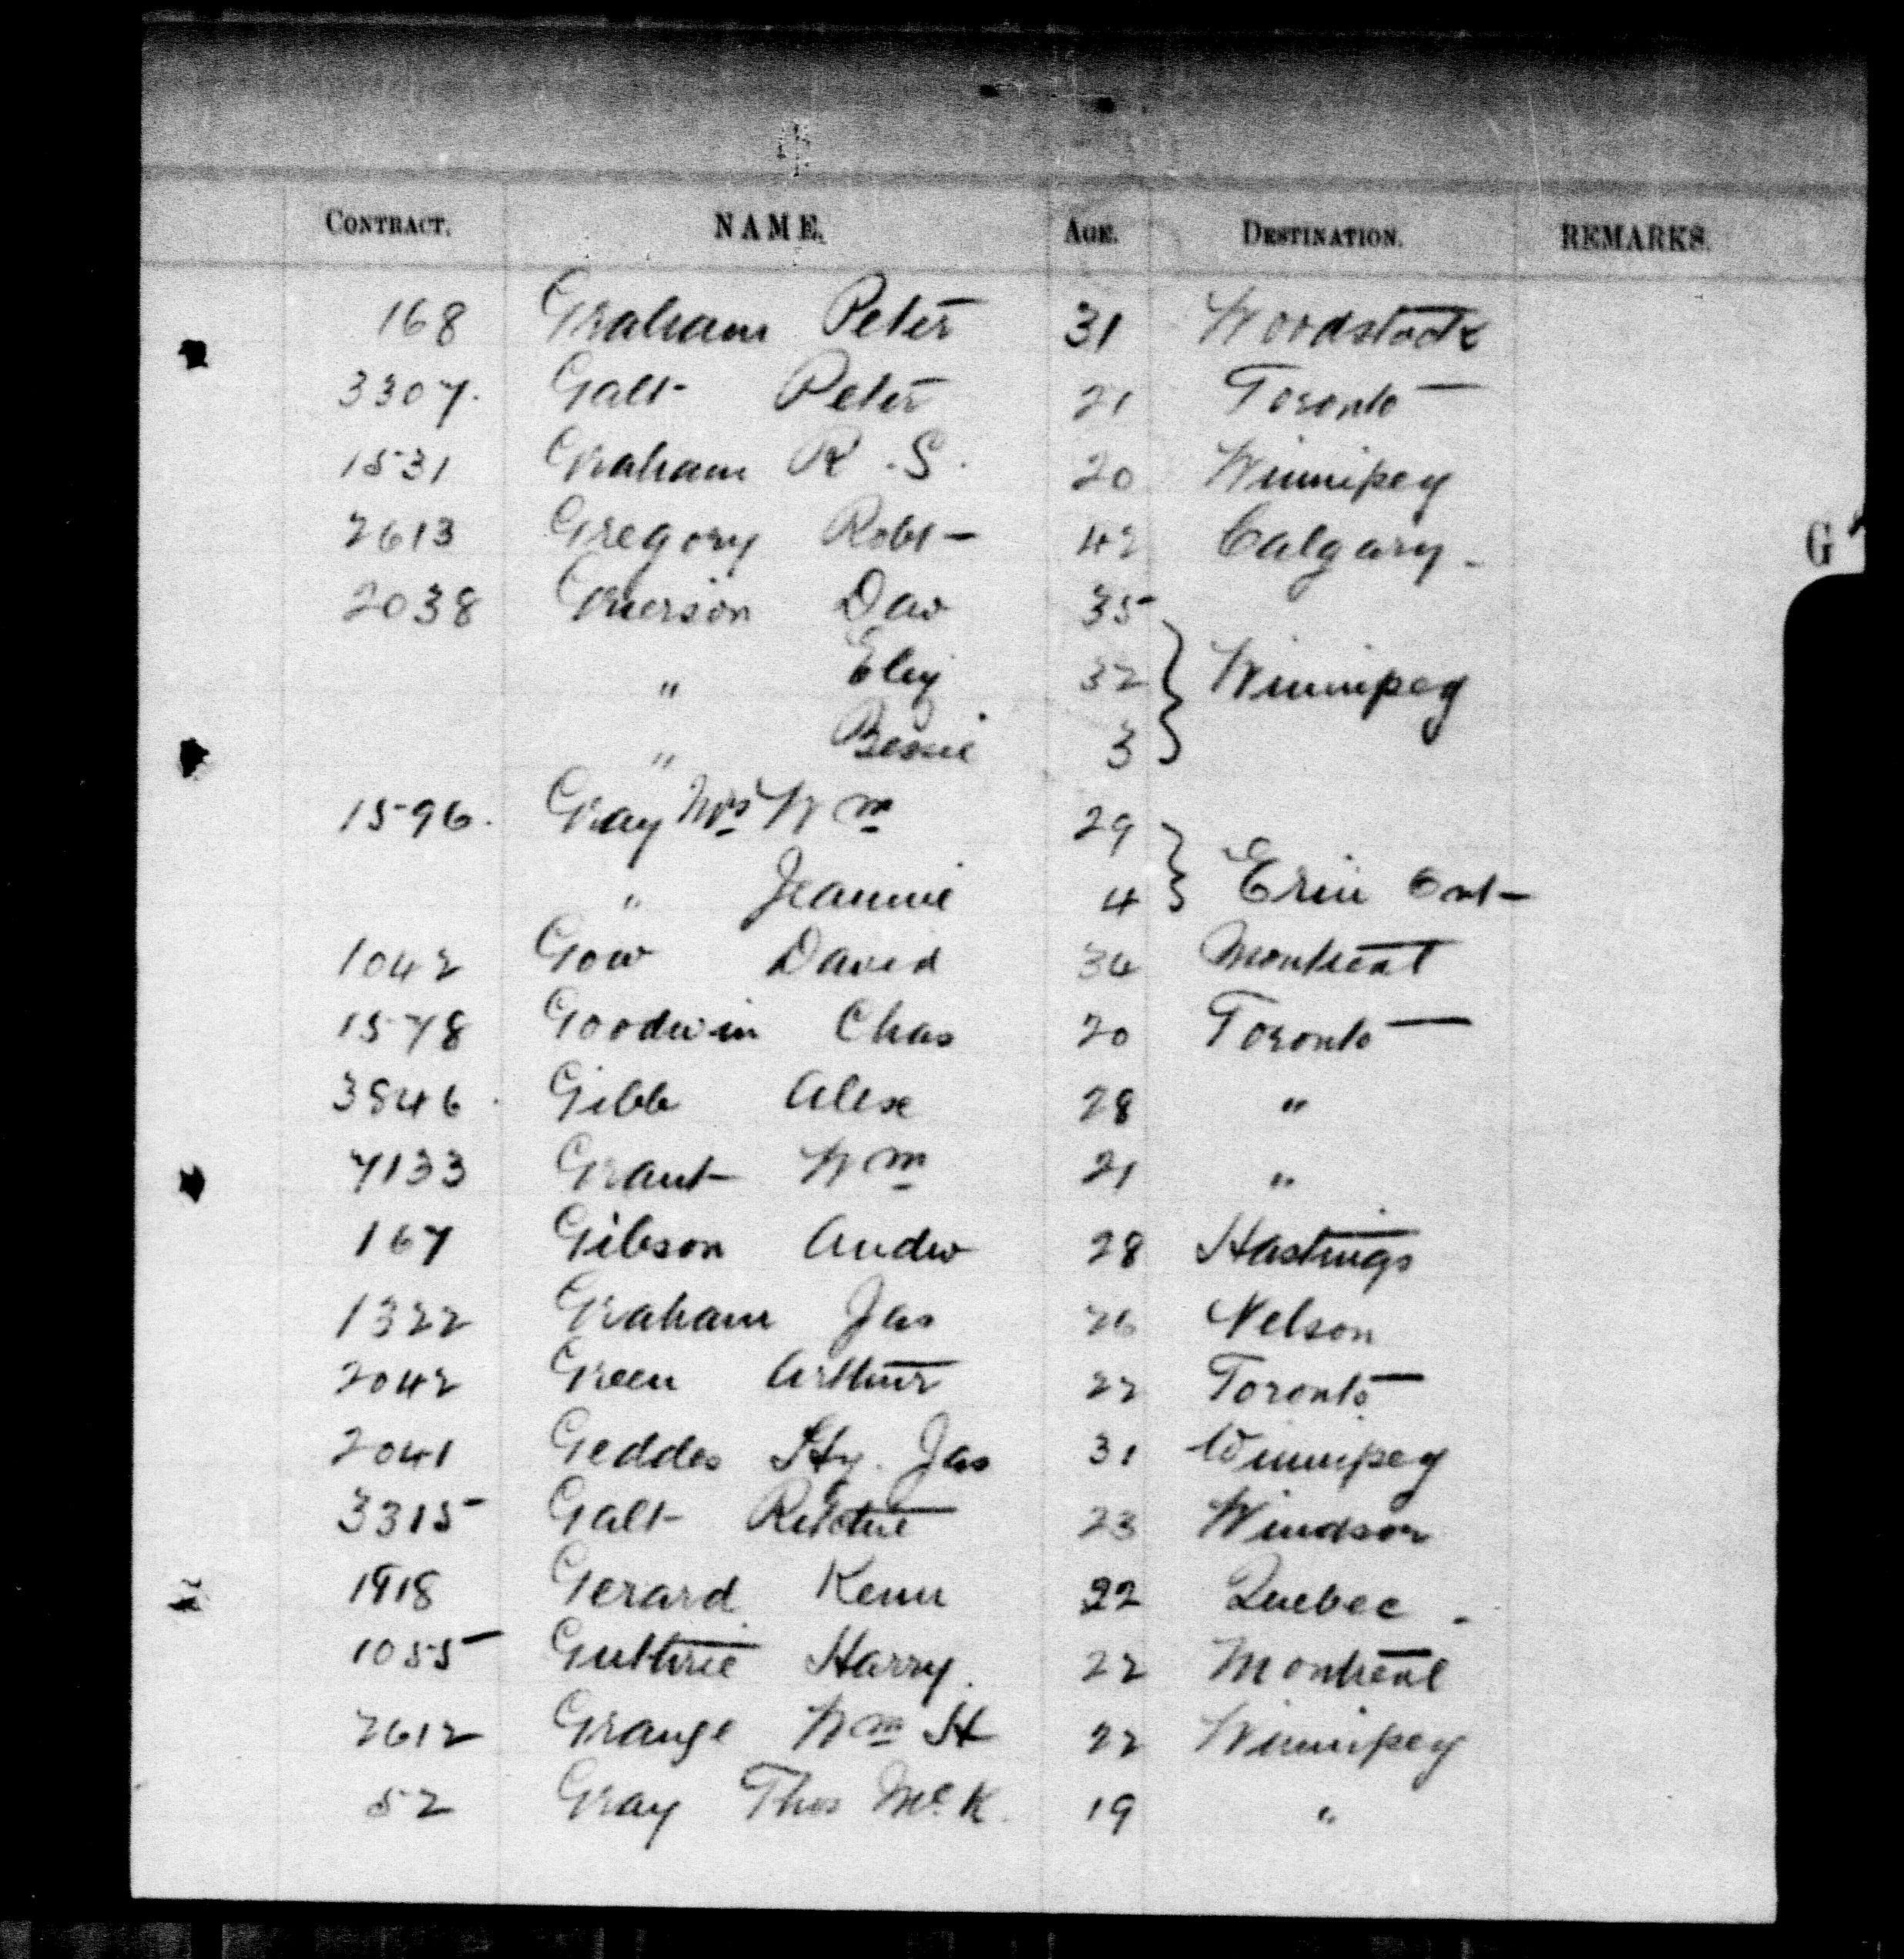 CONTRACT. NAME. AGE. DESTINATION. REMARKS.
168 Graham Peter 31 Woodstock
3307. Galt Peter 21 Toronto
1531 Graham R. S. 20 Winnipeg
2613 Gregory Robt 42 Calgary
G
2038 Grierson Dav 35
" Eliz 32 Winnipeg
" Bessie 3
1596. Gray Mrs Wm 29
" Jeannie 4 Erin Ont
1042 Gow David 34 Montreal
1578 Goodwin Chas 20 Toronto
3846 Gibb Alex 28 "
7133 Grant Wm 21 "
167 Gibson Andw 28 Hastings
1322 Graham Jas 26 Nelson
2042 Green Arthur 22 Toronto
2041 Geddes Hy. Jas 31 Winnipeg
3315 Galt Ritchie 23 Windsor
1918 Gerard Kenn 22 Quebec
1055 Guthrie Harry. 22 Montreal
2612 Grange Wm H 22 Winnipeg
52 Gray Thos McK. 19 "